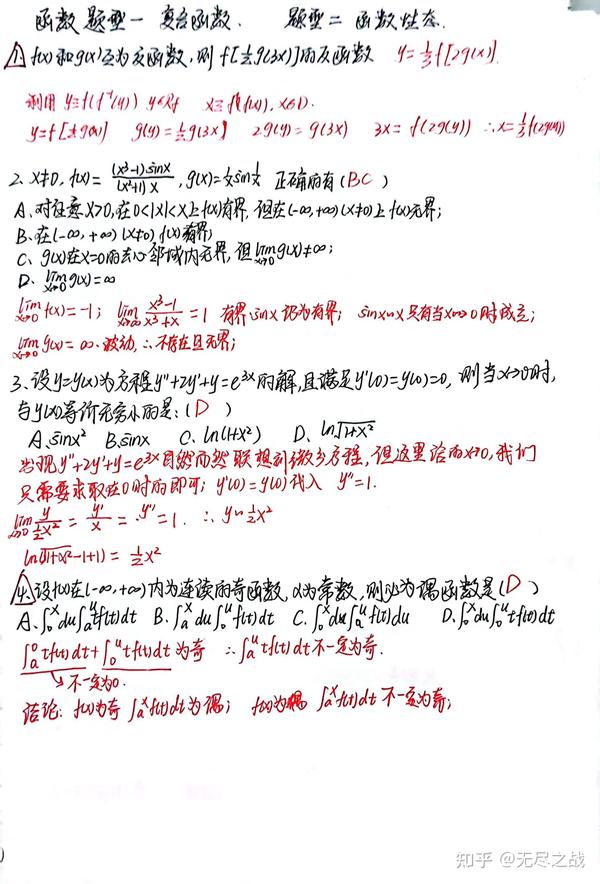 函数 题型一 复合函数. 题型二 函数性态.
1. f(x)和g(x)互为反函数,则f[½g(3x)]的反函数 y=⅓f[2g(x)].
利用 y≡f(f⁻¹(y)) y∈Rf x≡f⁻¹(f(x)), x∈D.
y=f[½g(3x)] g(y)=½g(3x) 2g(y)=g(3x) 3x=f(2g(y)) ∴x=⅓f(2g(y))
2. x≠0, f(x)=(x³-1)sinx/(x²+1)x, g(x)=1/x sin1/x 正确的有(BC)
A、对任意X>0,在0<|x|<X上f(x)有界,但在(-∞,+∞)(x≠0)上f(x)无界;
B、在(-∞,+∞)(x≠0),f(x)有界;
C、g(x)在x=0的去心邻域内无界,但lim x→0 g(x)≠∞;
D、lim x→0 g(x)=∞
lim x→0 f(x)=-1; lim x→∞ x³-1/x³+x=1 有界·sinx仍为有界; sinx~x只有当x→0时成立;
lim x→0 g(x)=∞·波动,∴不存在且无界;
3、设y=y(x)为方程y''+2y'+y=e³ˣ的解,且满足y'(0)=y(0)=0, 则当x→0时,
与y(x)等价无穷小的是:(D)
A、sinx² B、sinx C、ln(1+x²) D、ln√1+x²
出现y''+2y'+y=e³ˣ自然而然联想到微分方程,但这里论而x→0,我们
只需要求取在0时的即可; y'(0)=y(0)代入 y''=1.
lim x→0 y/½x² = y'/x = y''=1. ∴y~½x²
ln(√1+x²-1+1)=½x²
4.设f(x)在(-∞,+∞)内为连续的奇函数,a为常数,则必为偶函数是(D)
A、∫₀ˣdu∫ₐᵘtf(t)dt B、∫ₐˣdu∫₀ᵘf(t)dt C、∫₀ˣdu∫ₐᵘf(t)du D、∫₀ˣdu∫₀ᵘtf(t)dt
∫ₐ⁰tf(t)dt+∫₀ᵘtf(t)dt为奇 ∴∫ₐᵘtf(t)dt不一定为奇.
→不一定为0.
结论: f(x)为奇 ∫ₐˣf(t)dt为偶; f(x)为偶 ∫ₐˣf(t)dt 不一定为奇;
知乎 @无尽之战